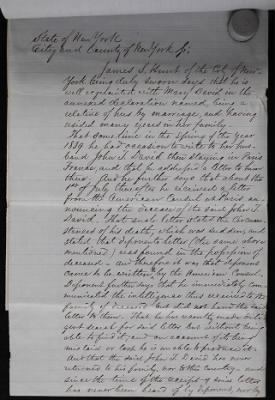 State of New York
City and County of New York ss.
James S. Hunt of the City of New-
York being duly sworn says that he is
well acquainted with Mary David in the
annexed declaration named, being a
relative of hers by marriage, and having
resided many years in her family.
That some time in the Spring of the year
1839 he had occasion to write to her hus-
band John I. David then staying in Paris
France, and that he addressed a letter to him
there. And he further says that about the
1st of July thereafter he received a letter
from the American Consul at Paris an-
nouncing the decease of the said John I.
David. That said letter stated the circum-
stances of his death, which was sudden, and
stated that deponents letter (the same above
mentioned) was found in the possession of
deceased — and therefore it was that deponent
came to be written by the American Consul.
Deponent further says that he immediately com-
municated the intelligence thus received to the
family of deceased but did not hand the
letter to them. That he has recently made dili-
gent search for said letter but without being
able to find it, and on account of its being
mislaid or lost he is unable to produce it.
And that the said John I. David has never
returned to his family, nor to this Country — and
since the time of the receipt of said letter
has never been heard of by deponent, nor by